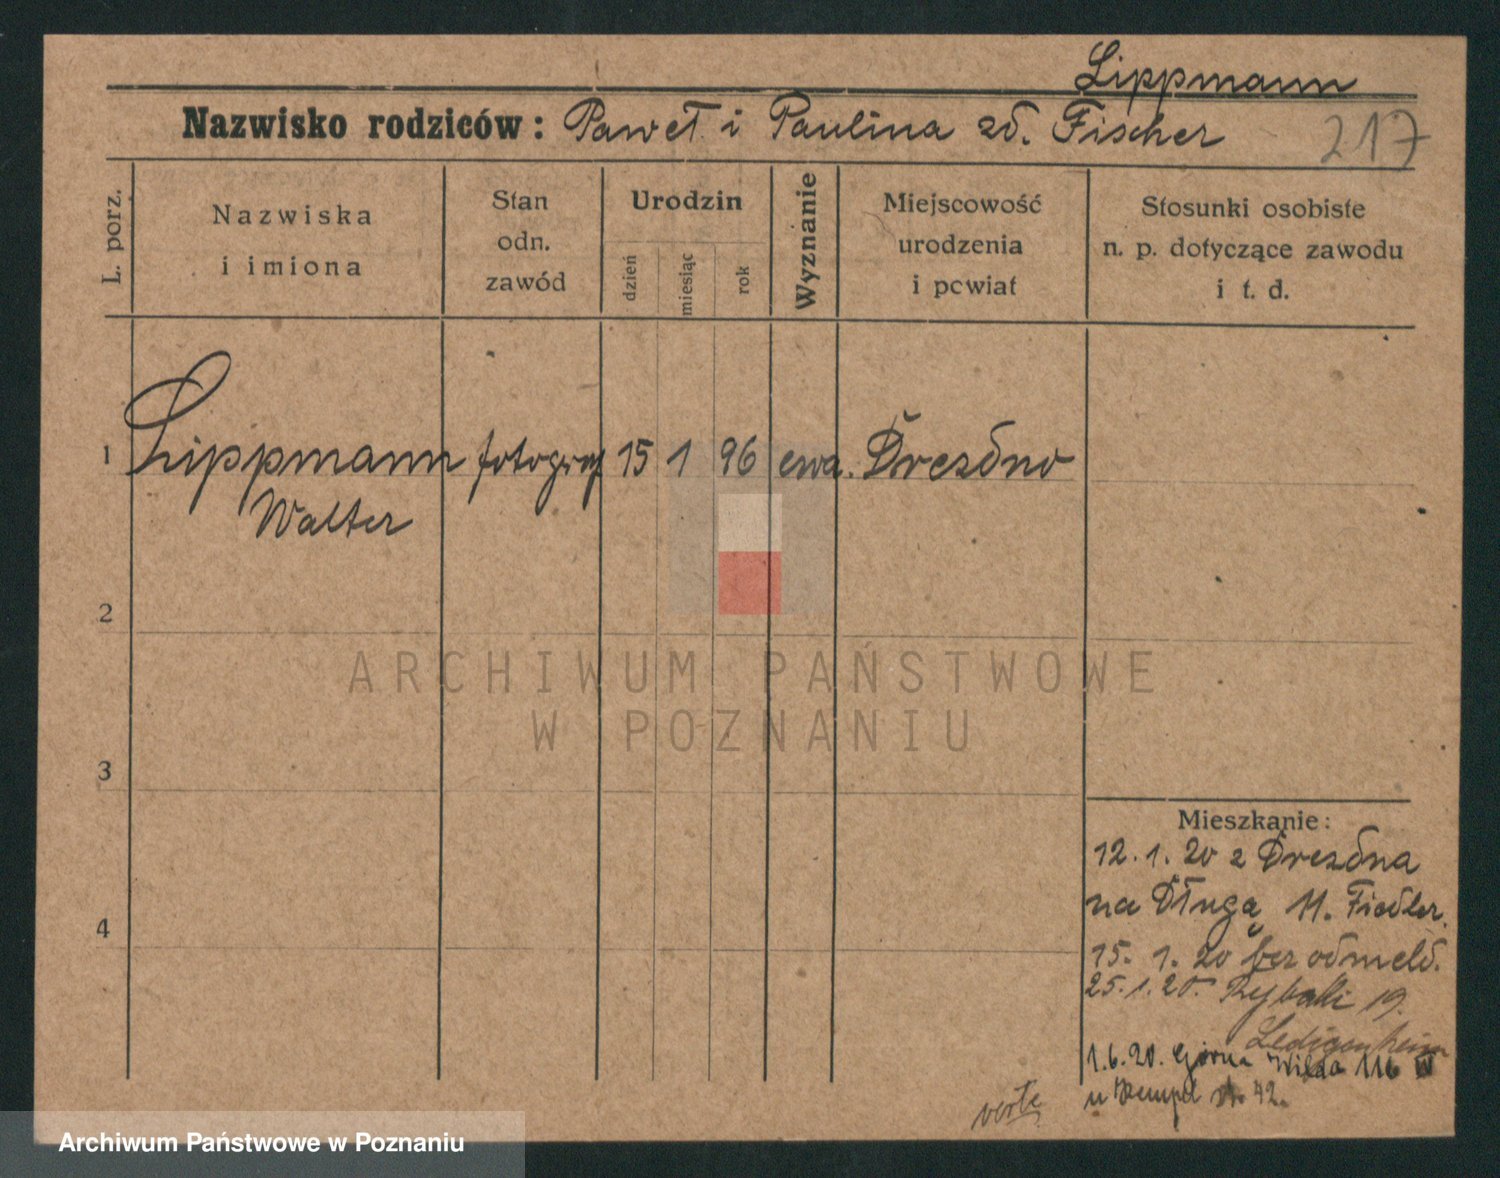 Lippmann
Nazwisko rodziców: Paweł i Paulina zd. Fischer
217
L. porz.
Nazwiska
i imiona
Stan
odn.
zawód
Urodzin
dzień
miesiąc
rok
Wyznanie
Miejscowość
urodzenia
i powiat
Stosunki osobiste
n. p. dotyczące zawodu
i t. d.
1 Lippmann fotograf 15 1 96 ewa. Drezdno
Walter
2
3
4
ARCHIWUM PAŃSTWOWE
W POZNANIU
Mieszkanie:
12. 1. 20 z Drezdna
na Długą 11. Fiedler.
15. 1. 20 bez odmeld.
25. 1. 20. Rybaki 19.
Ledigenheim
1. 6. 20. Górna Wilda 116 IV
u 42.
verte
Archiwum Państwowe w Poznaniu